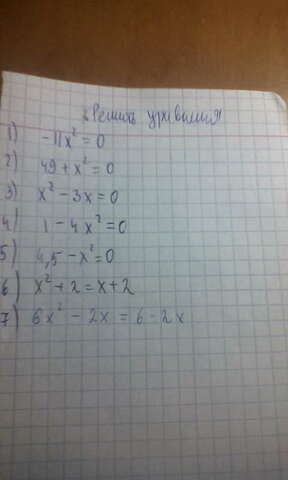 Решить уравнения
1) -11x² = 0
2) 49 + x² = 0
3) x² - 3x = 0
4) 1 - 4x² = 0
5) 4,5 - x² = 0
6) x² + 2 = x + 2
7) 6x² - 2x = 6 - 2x